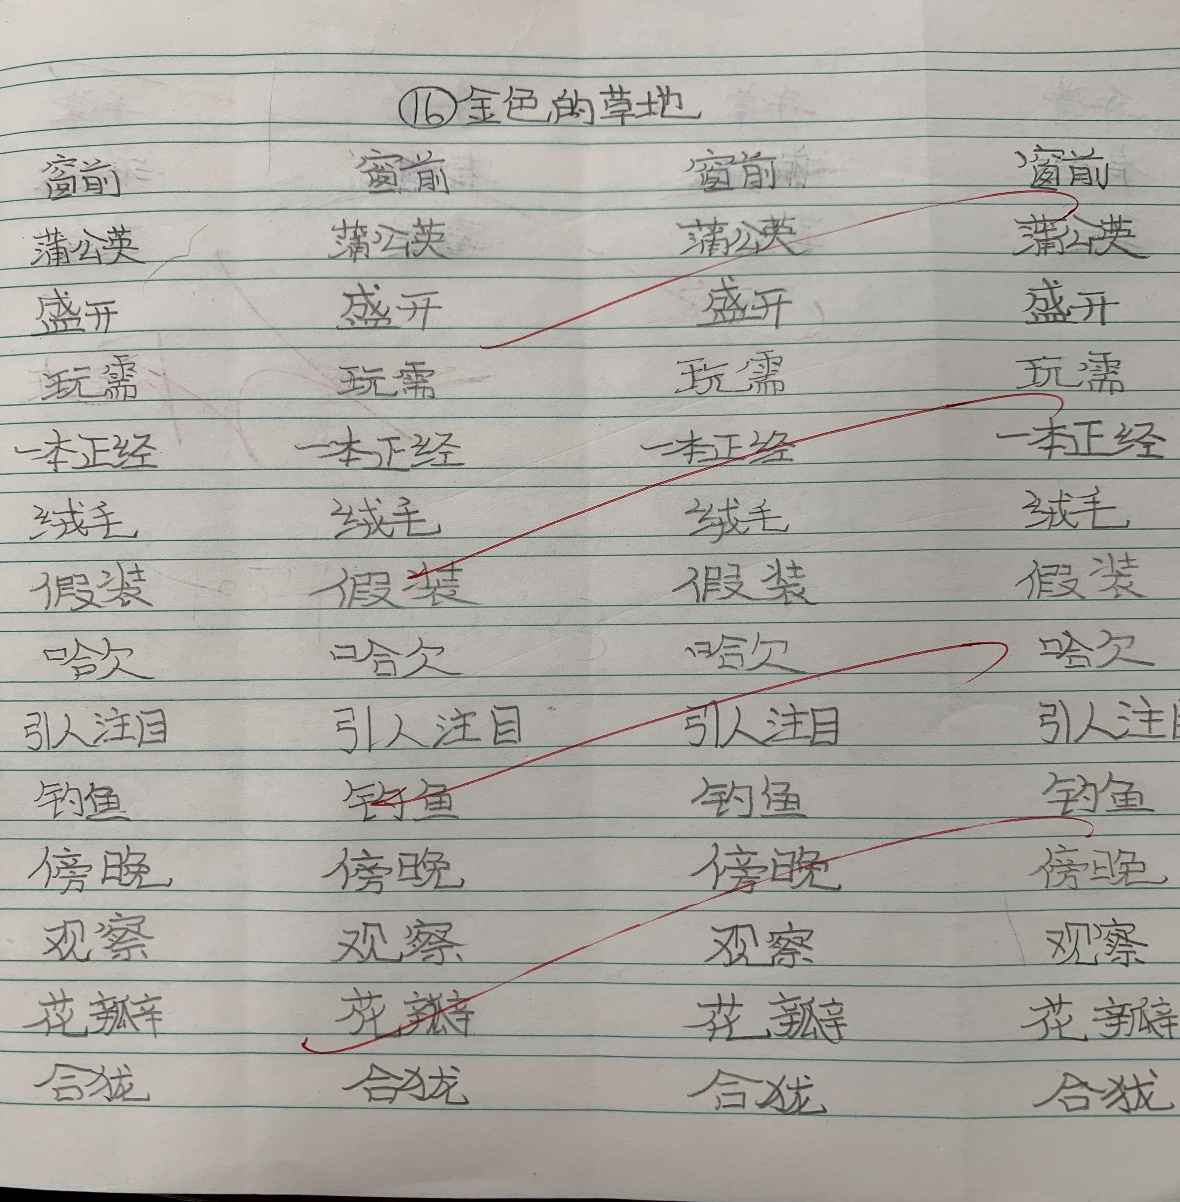 ⑯金色的草地
窗前 窗前 窗前 窗前
蒲公英 蒲公英 蒲公英 蒲公英
盛开 盛开 盛开 盛开
玩濡 玩需 玩濡 玩濡
一本正经 一本正经 一本正经 一本正经
绒毛 绒毛 绒毛 绒毛
假装 假装 假装 假装
哈欠 哈欠 哈欠 哈欠
引人注目 引人注目 引人注目 引人注目
钓鱼 钓鱼 钓鱼 钓鱼
傍晚 傍晚 傍晚 傍晚
观察 观察 观察 观察
花瓣 花瓣 花瓣 花瓣
合拢 合拢 合拢 合拢